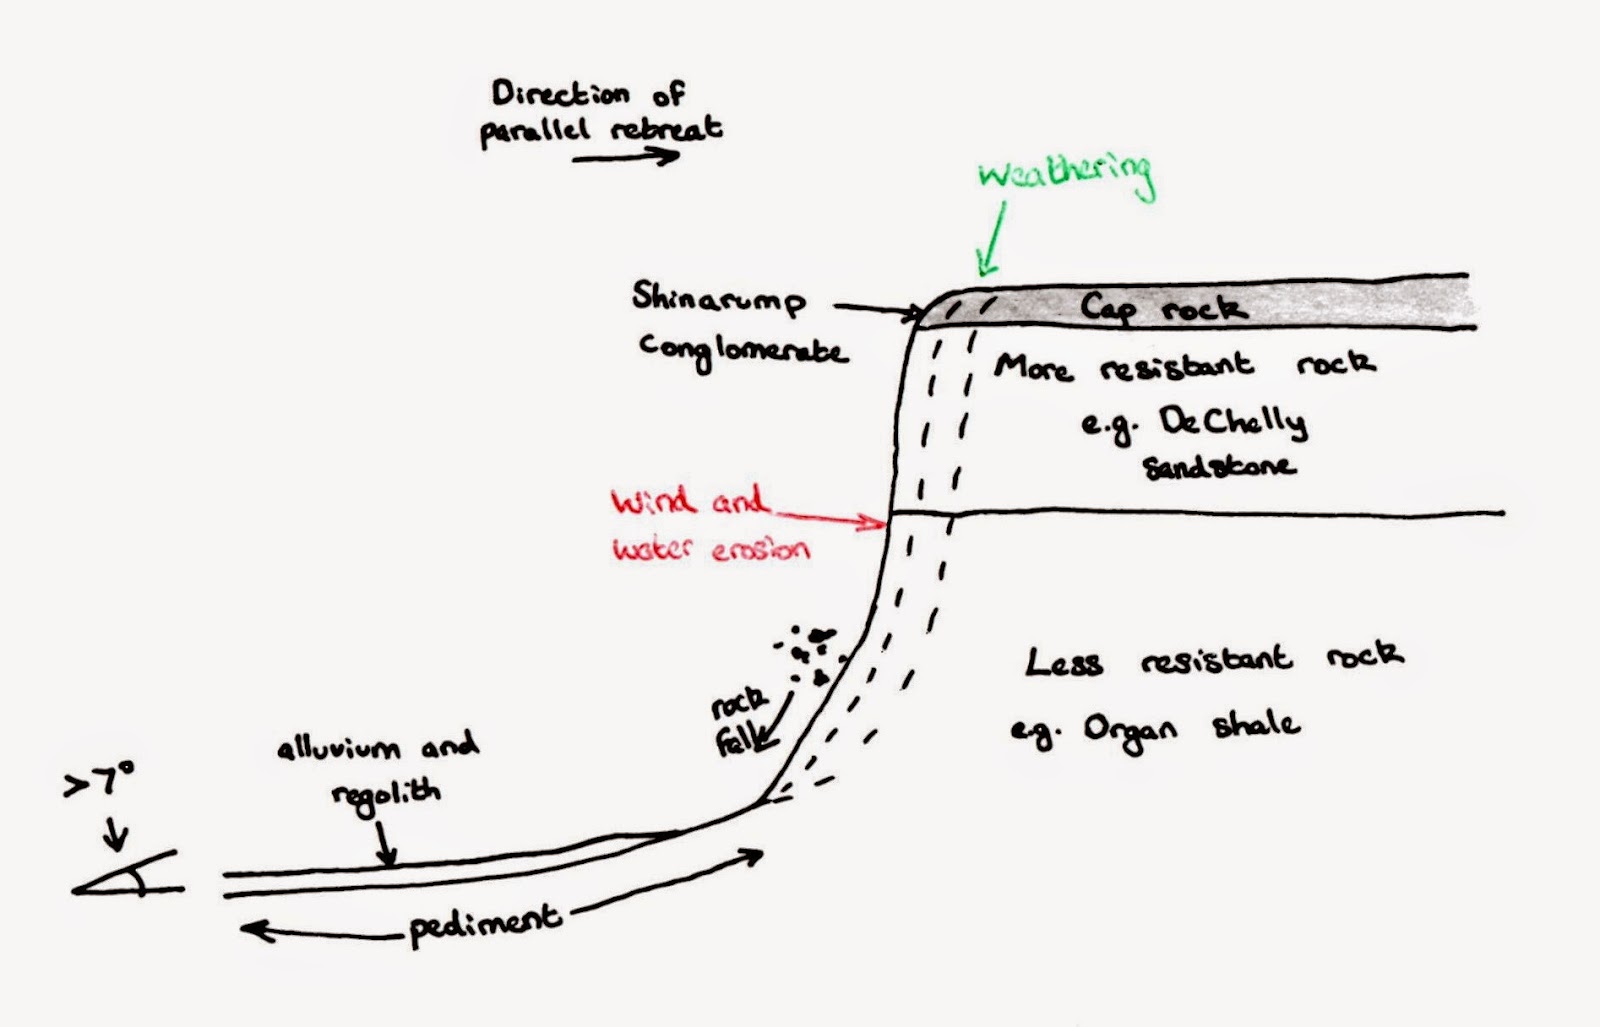 Direction of
parallel retreat
Weathering
Shinarump
Conglomerate
Cap rock
More resistant rock
e.g. DeChelly
sandstone
Wind and
water erosion
Less resistant rock
e.g. Organ shale
rock
fall
alluvium and
regolith
>7°
pediment